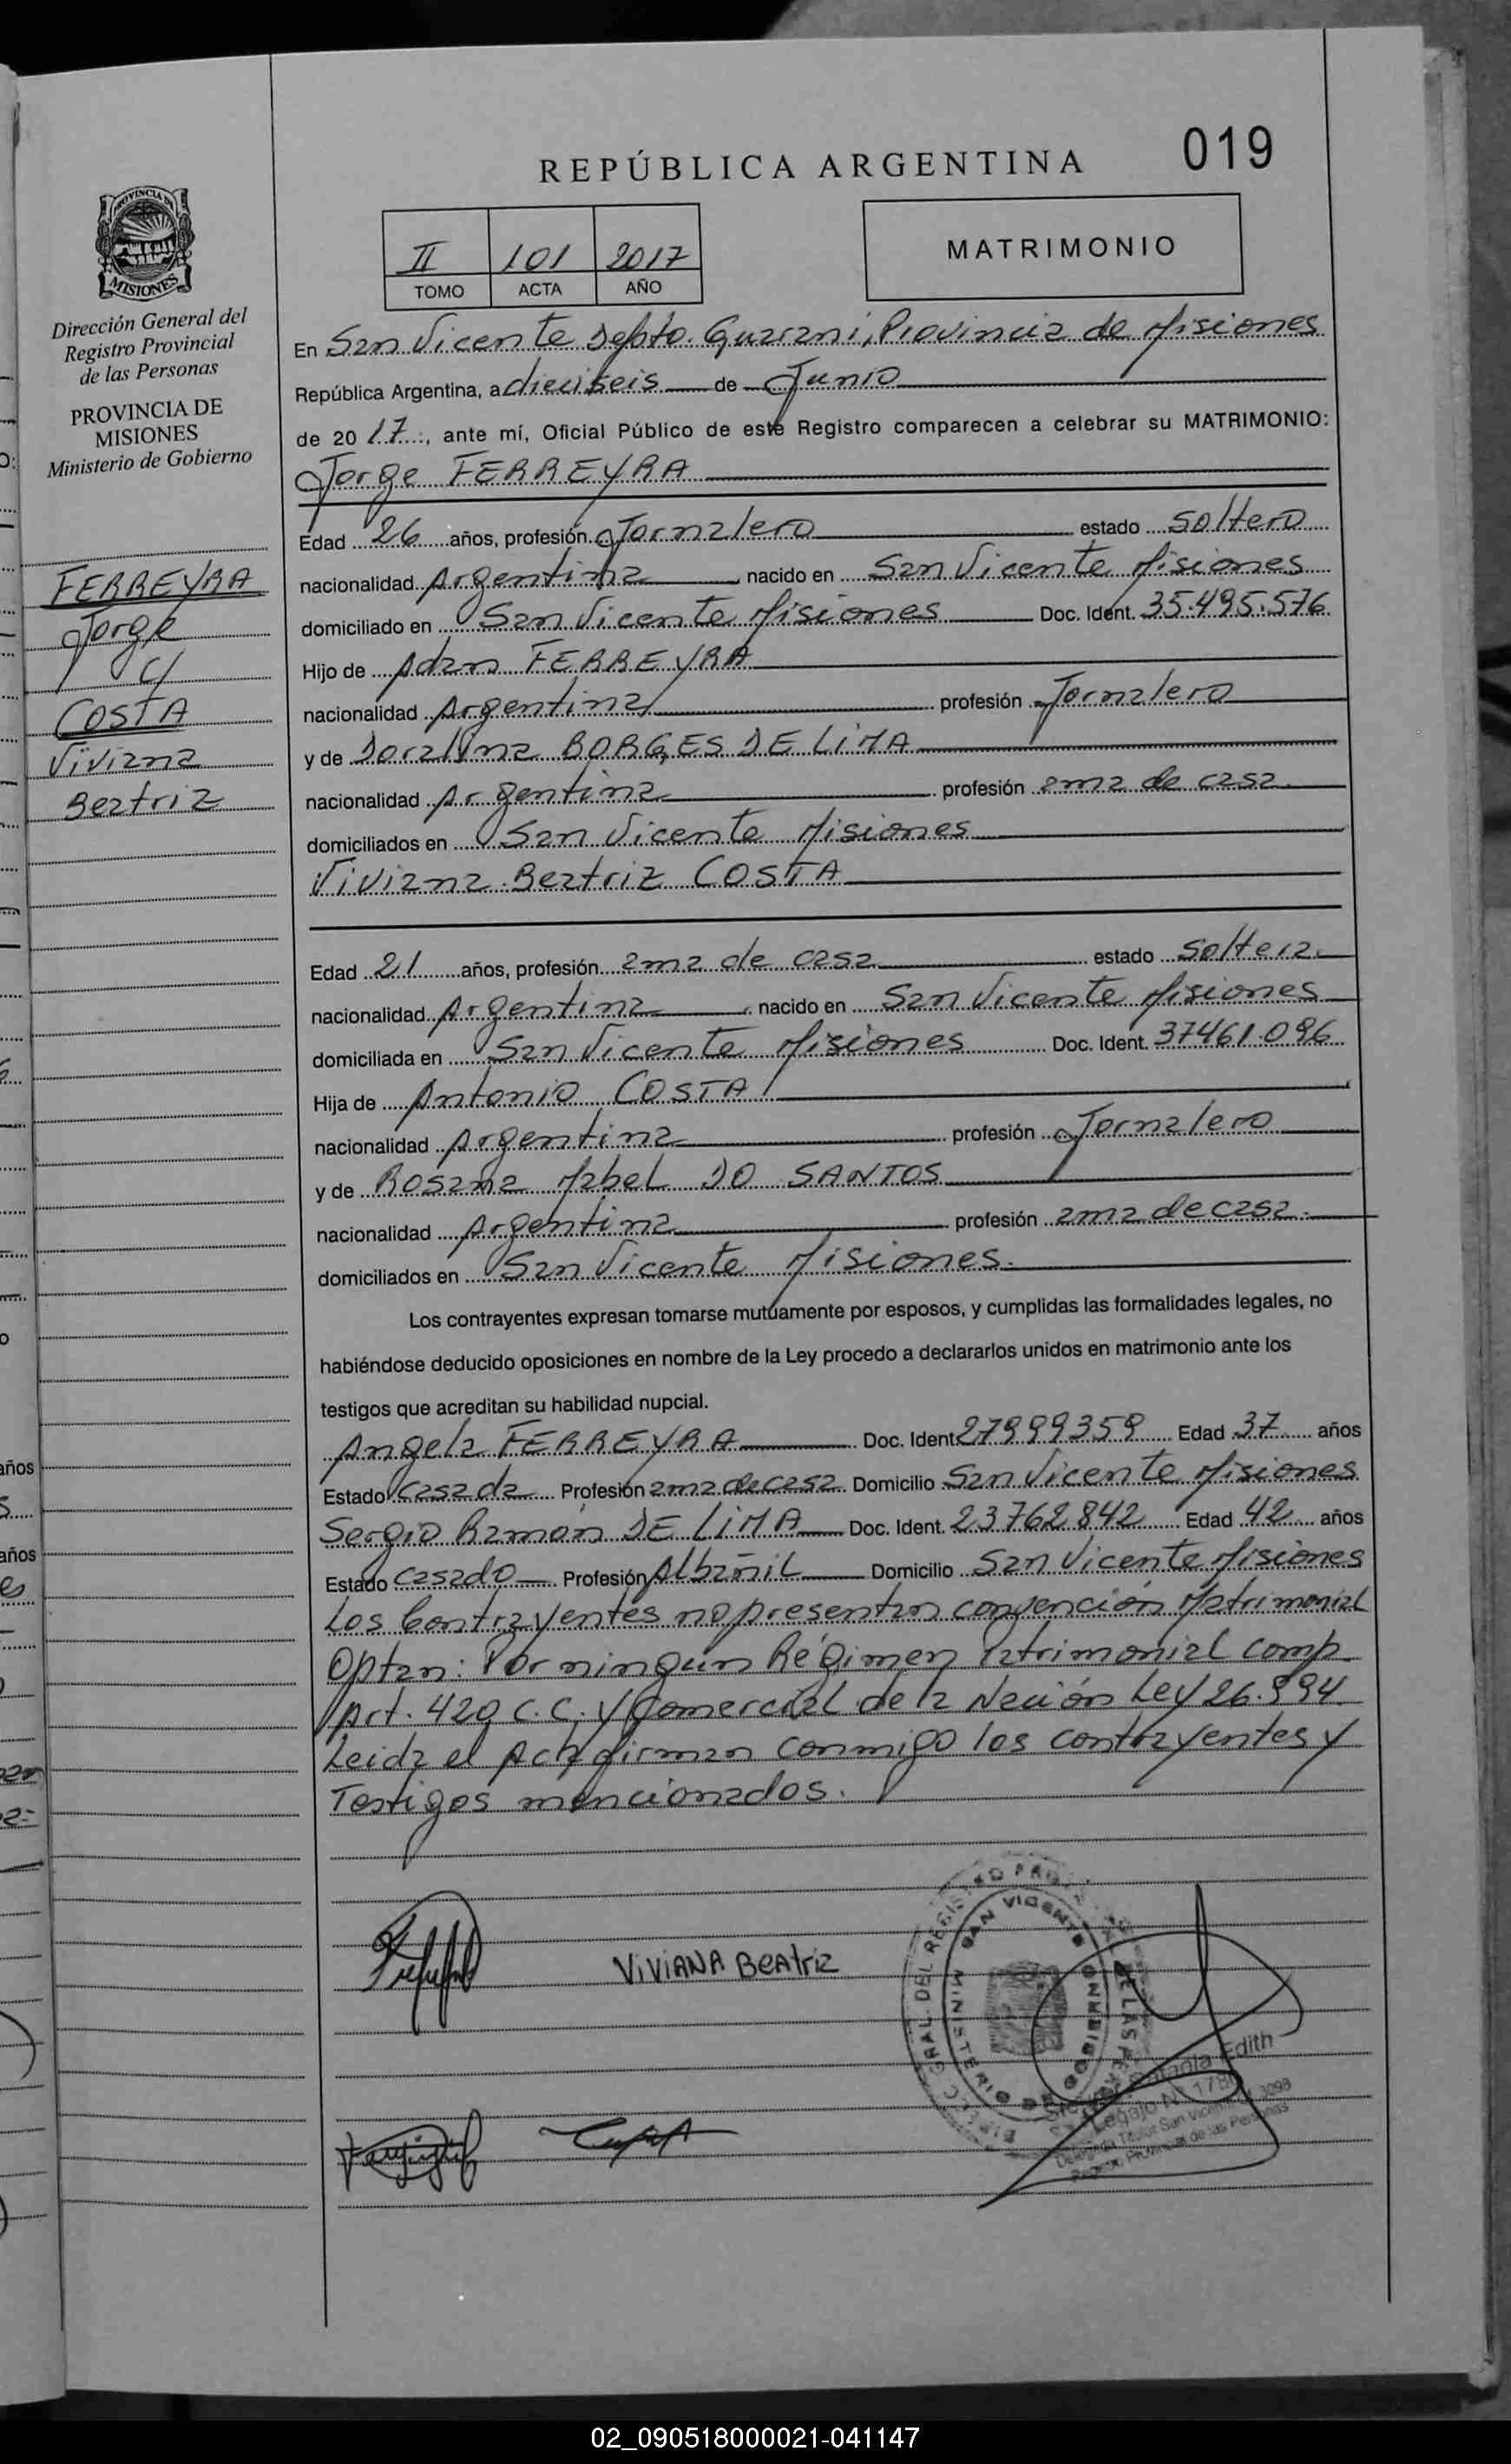 019
REPÚBLICA ARGENTINA
II 101 2017
TOMO ACTA AÑO
MATRIMONIO
PROVINCIA DE
MISIONES
Dirección General del
Registro Provincial
de las Personas
PROVINCIA DE
MISIONES
Ministerio de Gobierno
FERREYRA
Jorge
c/
COSTA
Viviana
Beatriz
En San Vicente Depto. Guaraní, Provincia de Misiones
República Argentina, a dieciseis de Junio
de 20 17, ante mí, Oficial Público de este Registro comparecen a celebrar su MATRIMONIO:
Jorge FERREYRA
Edad 26 años, profesión Jornalero estado soltero
nacionalidad Argentina nacido en San Vicente Misiones
domiciliado en San Vicente Misiones Doc. Ident. 35.495.576
Hijo de Adam FERREYRA
nacionalidad Argentina profesión Jornalero
y de Doralina BORGES DE LIMA
nacionalidad Argentina profesión ama de casa
domiciliados en San Vicente Misiones
Viviana Beatriz COSTA
Edad 21 años, profesión ama de casa estado soltera
nacionalidad Argentina nacido en San Vicente Misiones
domiciliada en San Vicente Misiones Doc. Ident. 37461.096
Hija de Antonio COSTA
nacionalidad Argentina profesión Jornalero
y de Rosana Mabel DO SANTOS
nacionalidad Argentina profesión ama de casa.
domiciliados en San Vicente Misiones.
Los contrayentes expresan tomarse mutuamente por esposos, y cumplidas las formalidades legales, no
habiéndose deducido oposiciones en nombre de la Ley procedo a declararlos unidos en matrimonio ante los
testigos que acreditan su habilidad nupcial.
Angela FERREYRA Doc. Ident 27999359 Edad 37 años
Estado casada Profesión ama de casa Domicilio San Vicente Misiones
Sergio Ramón DE LIMA Doc. Ident. 23762842 Edad 42 años
Estado casado Profesión Albañil Domicilio San Vicente Misiones
Los Contrayentes no presentan convención Matrimonial
Optan: Por ningún Régimen Patrimonial comp.
Art. 420 C.C. y Comercial de la Nación Ley 26.994.
Leida el Acta firman conmigo los contrayentes y
Testigos mencionados.
VIVIANA BeAtriz
SAN VICENTE
MINISTERIO
Edith
02_090518000021-041147